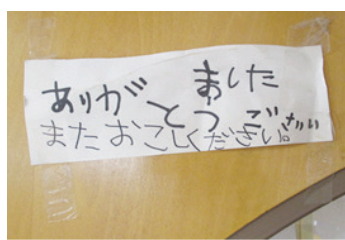 ありがとつございました
またおこしください。